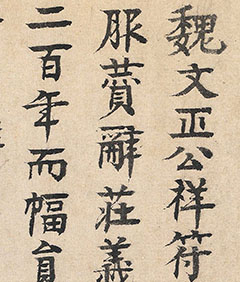 魏文正公祥符
服辭莊義
二百年而幅員